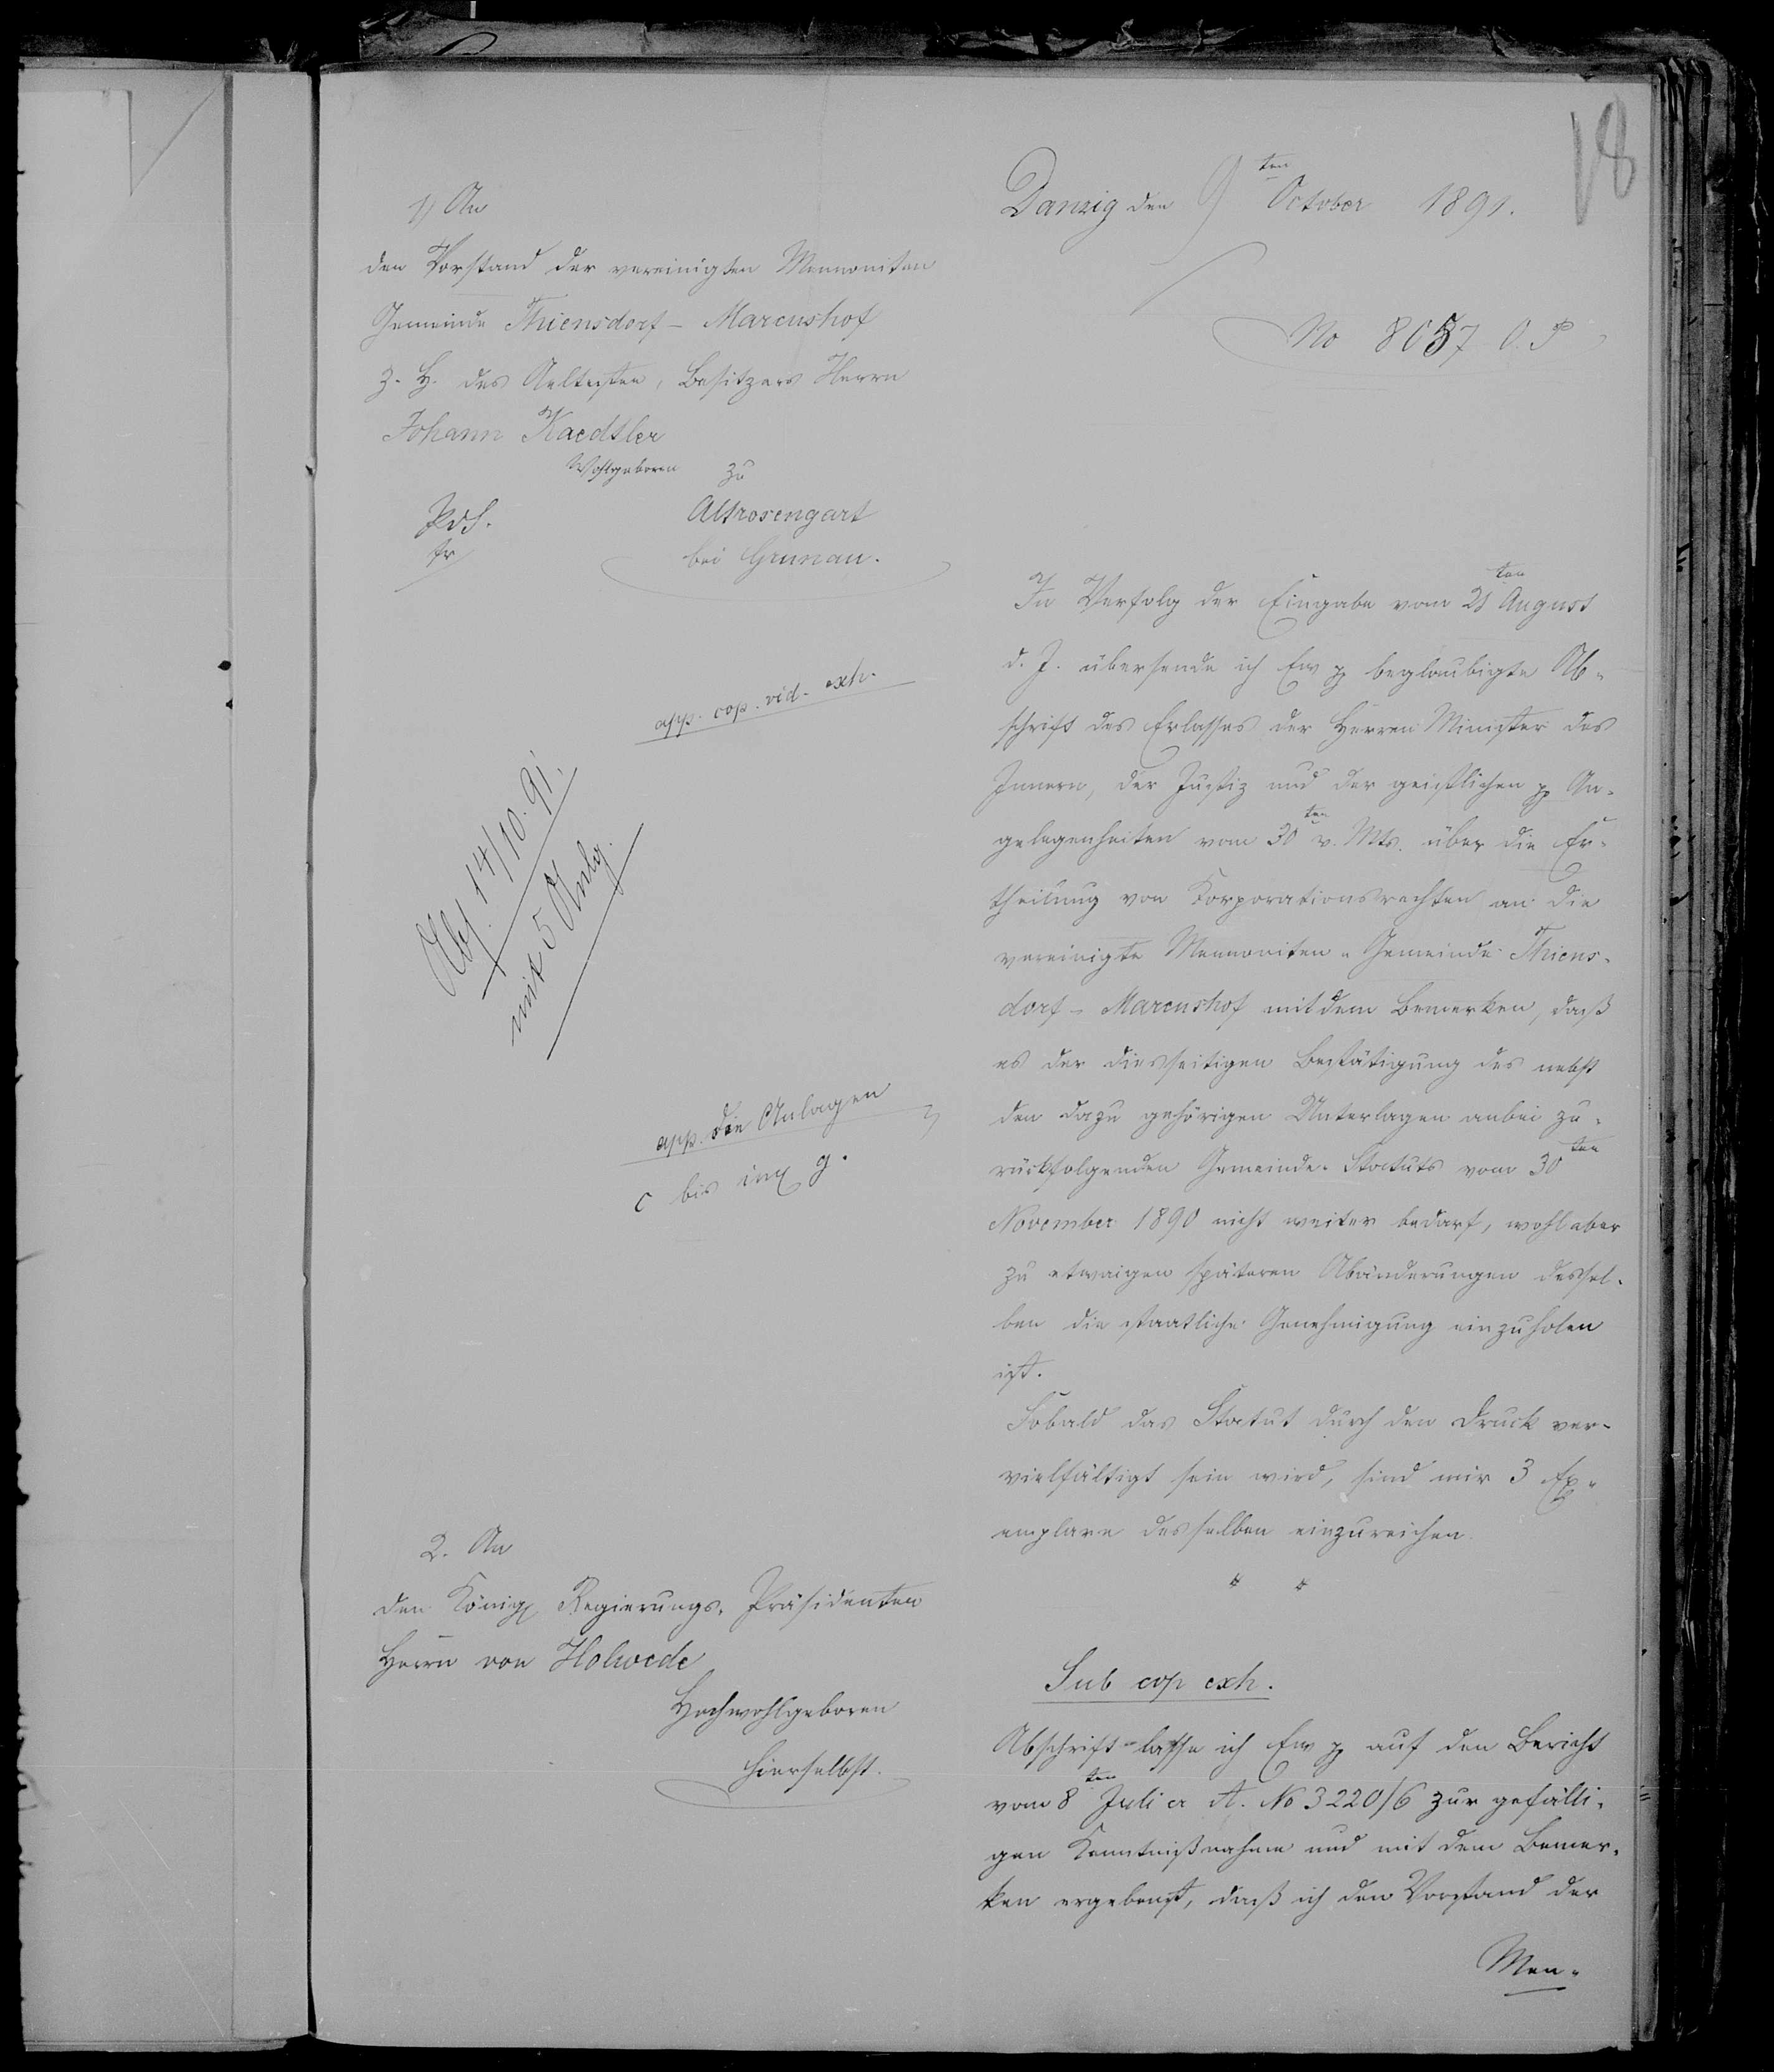 18
Danzig den 9ten October 1891.
No 8057 O. P
1) An
den Vorstand der vereinigten Mennoniten
Gemeinde Thiensdorf - Marcushof
z. H. des Aeltesten, Besitzers Herrn
Johann Kaedtler
Wohlgeboren zu
Altrosengart
bei Grunau.
In Verfolg der Eingabe vom 21ten August
d. J. übersende ich Ew pp beglaubigte Ab-
schrift des Erlasses der Herren Minister des
Innern, der Justiz und der geistlichen pp An-
gelegenheiten vom 30ten v. Mts. über die Er-
theilung von Korporationsrechten an die
vereinigte Mennoniten-Gemeinde Thiens-
dorf - Marcushof mit dem Bemerken, daß
es der diesseitigen Bestätigung des nebst
den dazu gehörigen Unterlagen anbei zu-
rückfolgenden Gemeinde-Statuts vom 30ten
November 1890 nicht weiter bedarf, wohl aber
zu etwaigen späteren Abänderungen dessel-
ben die staatliche Genehmigung einzuholen
ist.
Sobald das Statut durch den Druck ver-
vielfältigt sein wird, sind mir 3 Ex-
emplare desselben einzureichen.
app. cop. vid. exh.
Abs. 14/10. 91.
mit 5 Anlg.
app. die Anlagen
c bis incl g.
2. An
den Königl Regierungs-Präsidenten
Herrn von Holwede
Hochwohlgeboren
hierselbst.
Sub cop exh.
Abschrift lasse ich Ew pp auf den Bericht
vom 8ten Juli cr A. No 3220/6 zur gefälli-
gen Kenntnißnahme und mit dem Bemer-
ken ergebenst, daß ich den Vorstand der
Men-